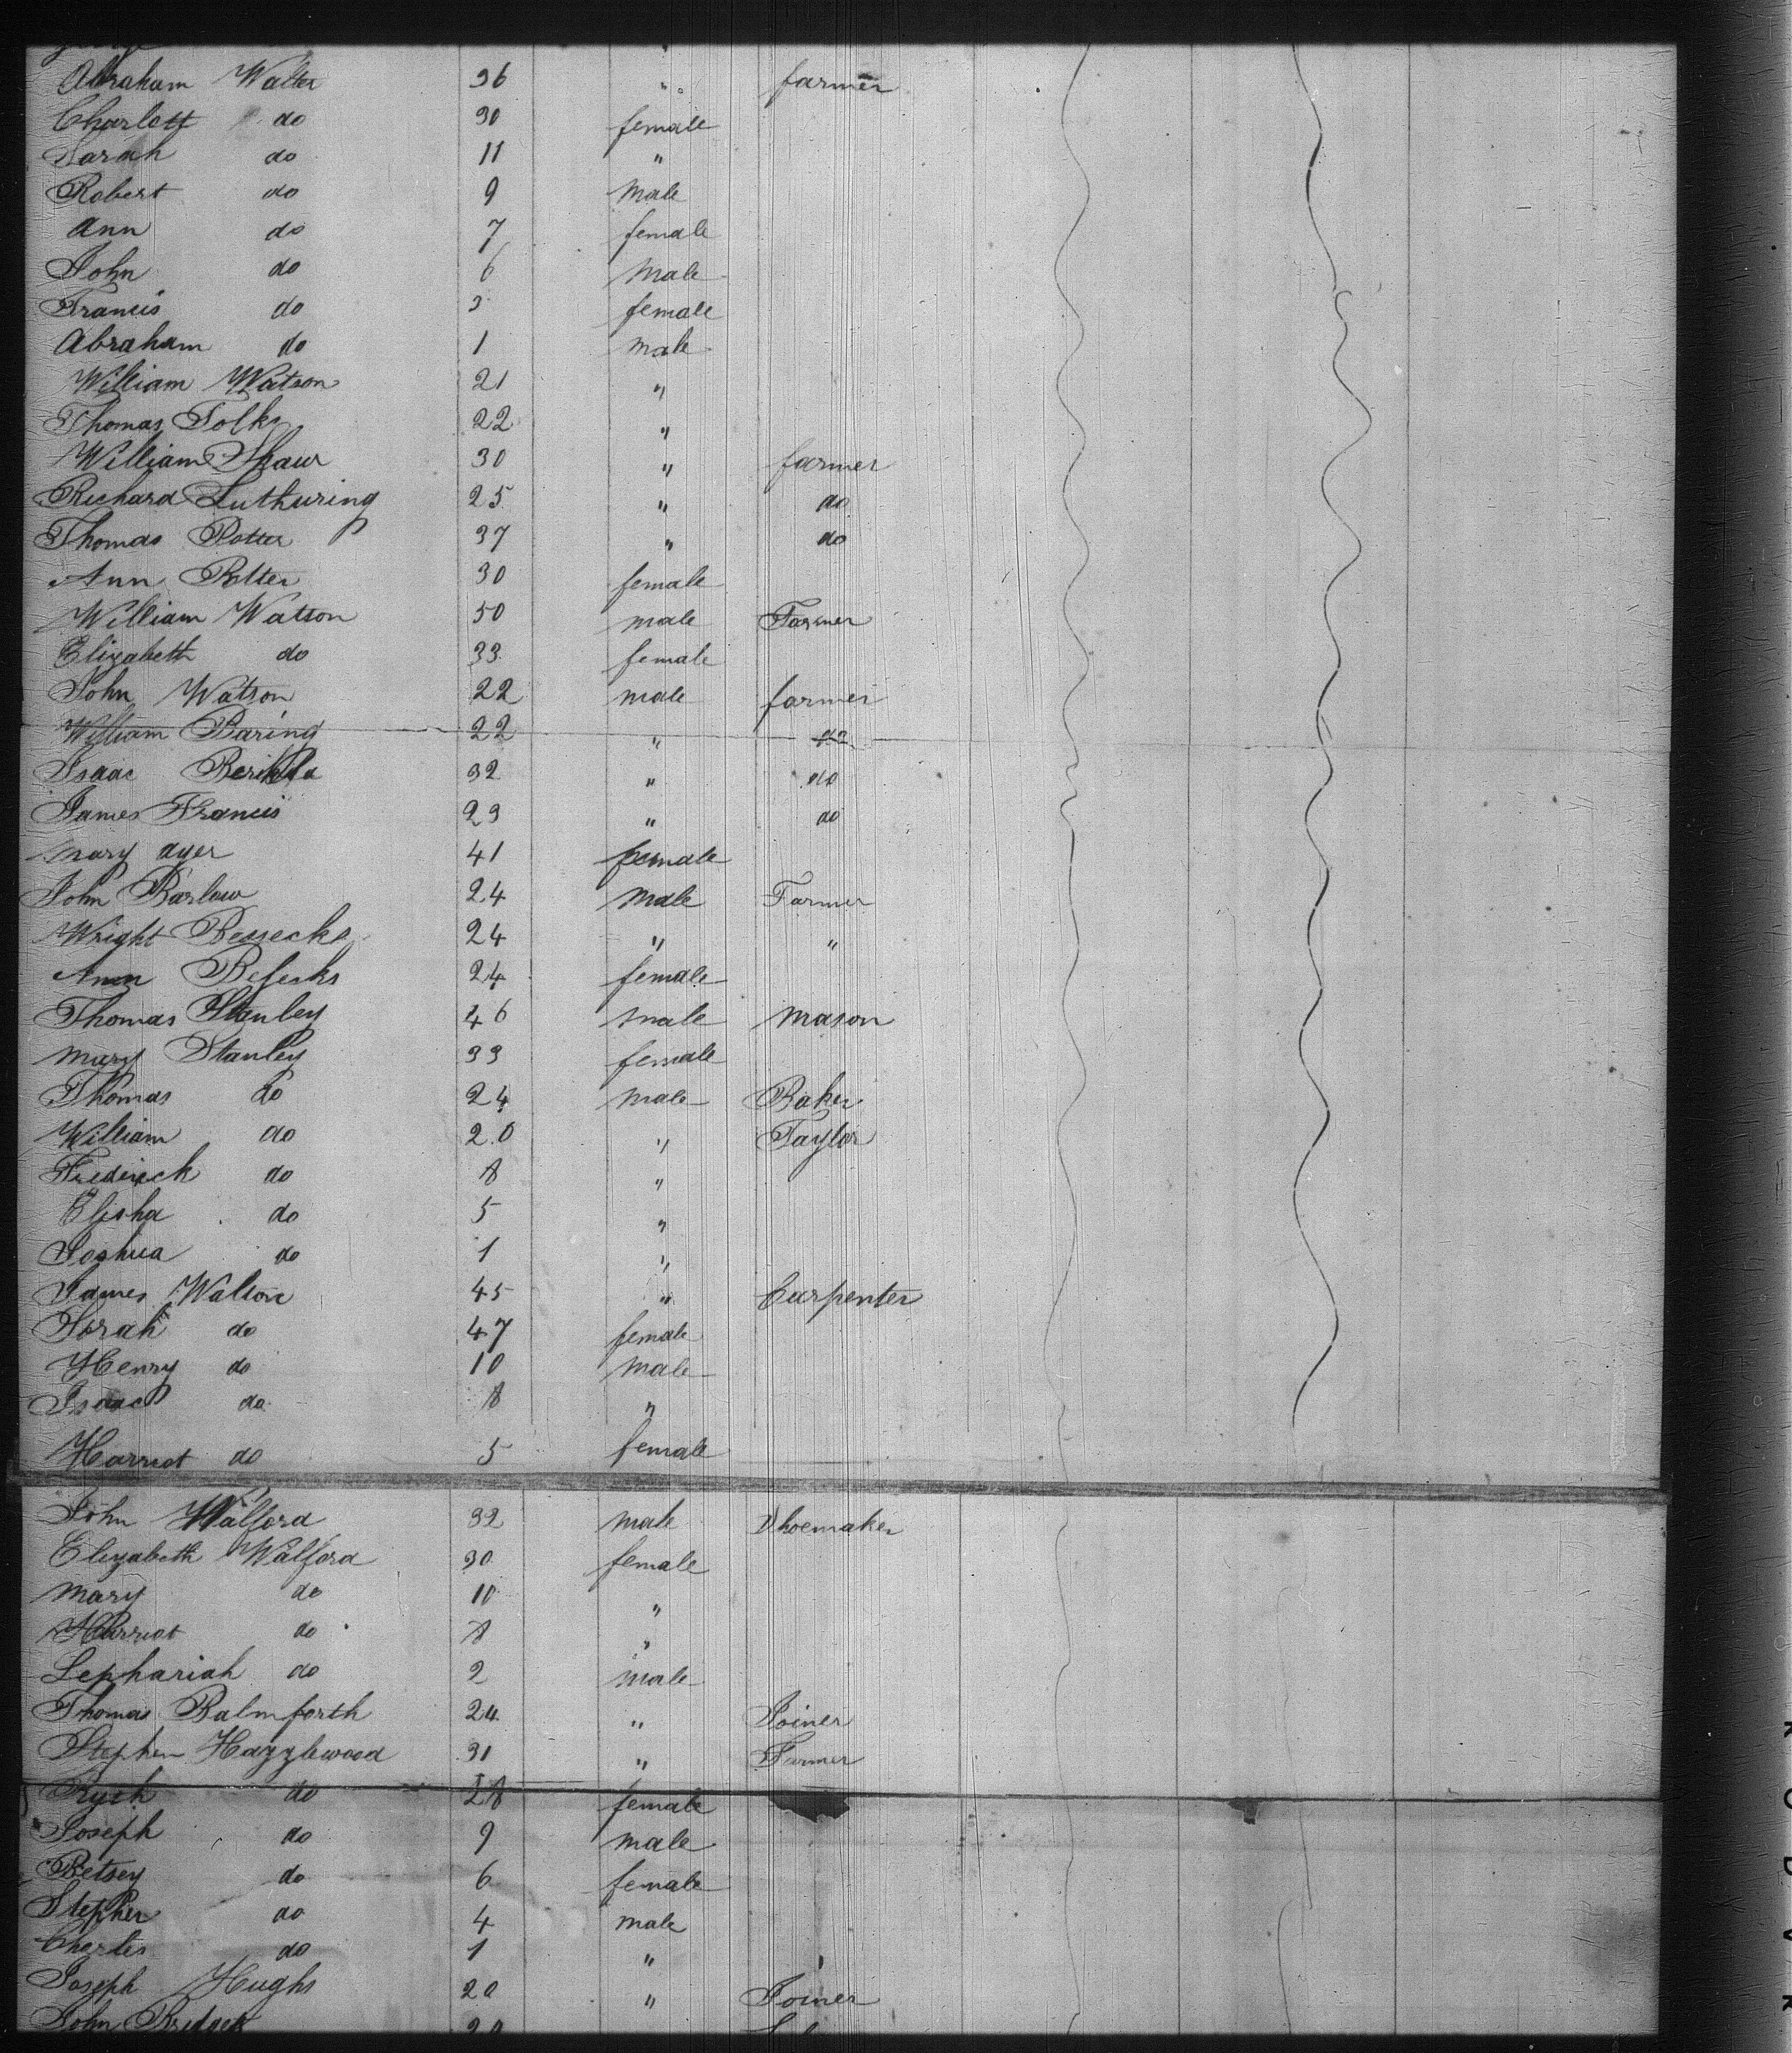 George
Abraham Walter 36 " farmer
Charlott do 30 female
Sarah do 11 "
Robert do 9 Male
Ann do 7 female
John do 6 Male
Francis do 3 female
Abraham do 1 male
William Watson 21 "
Thomas Folks 22 "
William Shaw 30 " farmer
Richard Luthuring 25 " do
Thomas Potter 37 " do
Ann Potter 30 female
William Watson 50 male Farmer
Elizabeth do 33 female
John Watson 22 male farmer
William Baring 22 " do
Isaac 32 " do
James Francis 23 " do
Mary dyer 41 female
John Barlow 24 Male Farmer
Wright Bessecks 24 " "
Ann Besecks 24 female
Thomas Stanley 46 male Mason
Mary Stanley 33 female
Thomas do 24 male Baker
William do 20 " Taylor
Frederick do 8 "
Elisha do 5 "
Joshua do 1 "
James Walton 45 " Carpenter
Sarah do 47 female
Henry do 10 Male
Isaac do 8 "
Harriot do 5 female
John Walford 32 male Shoemaker
Elizabeth Walford 30 female
Mary do 10 "
Harriot do 8 "
Lephariah do 2 male
Thomas Balmforth 24 " Joiner
Stephen Hazzlewood 31 " Farmer
do 28 female
Joseph do 9 male
Betsey do 6 female
Stephen do 4 male
Charles do 1 "
Joseph Hughs 20 " Joiner
John